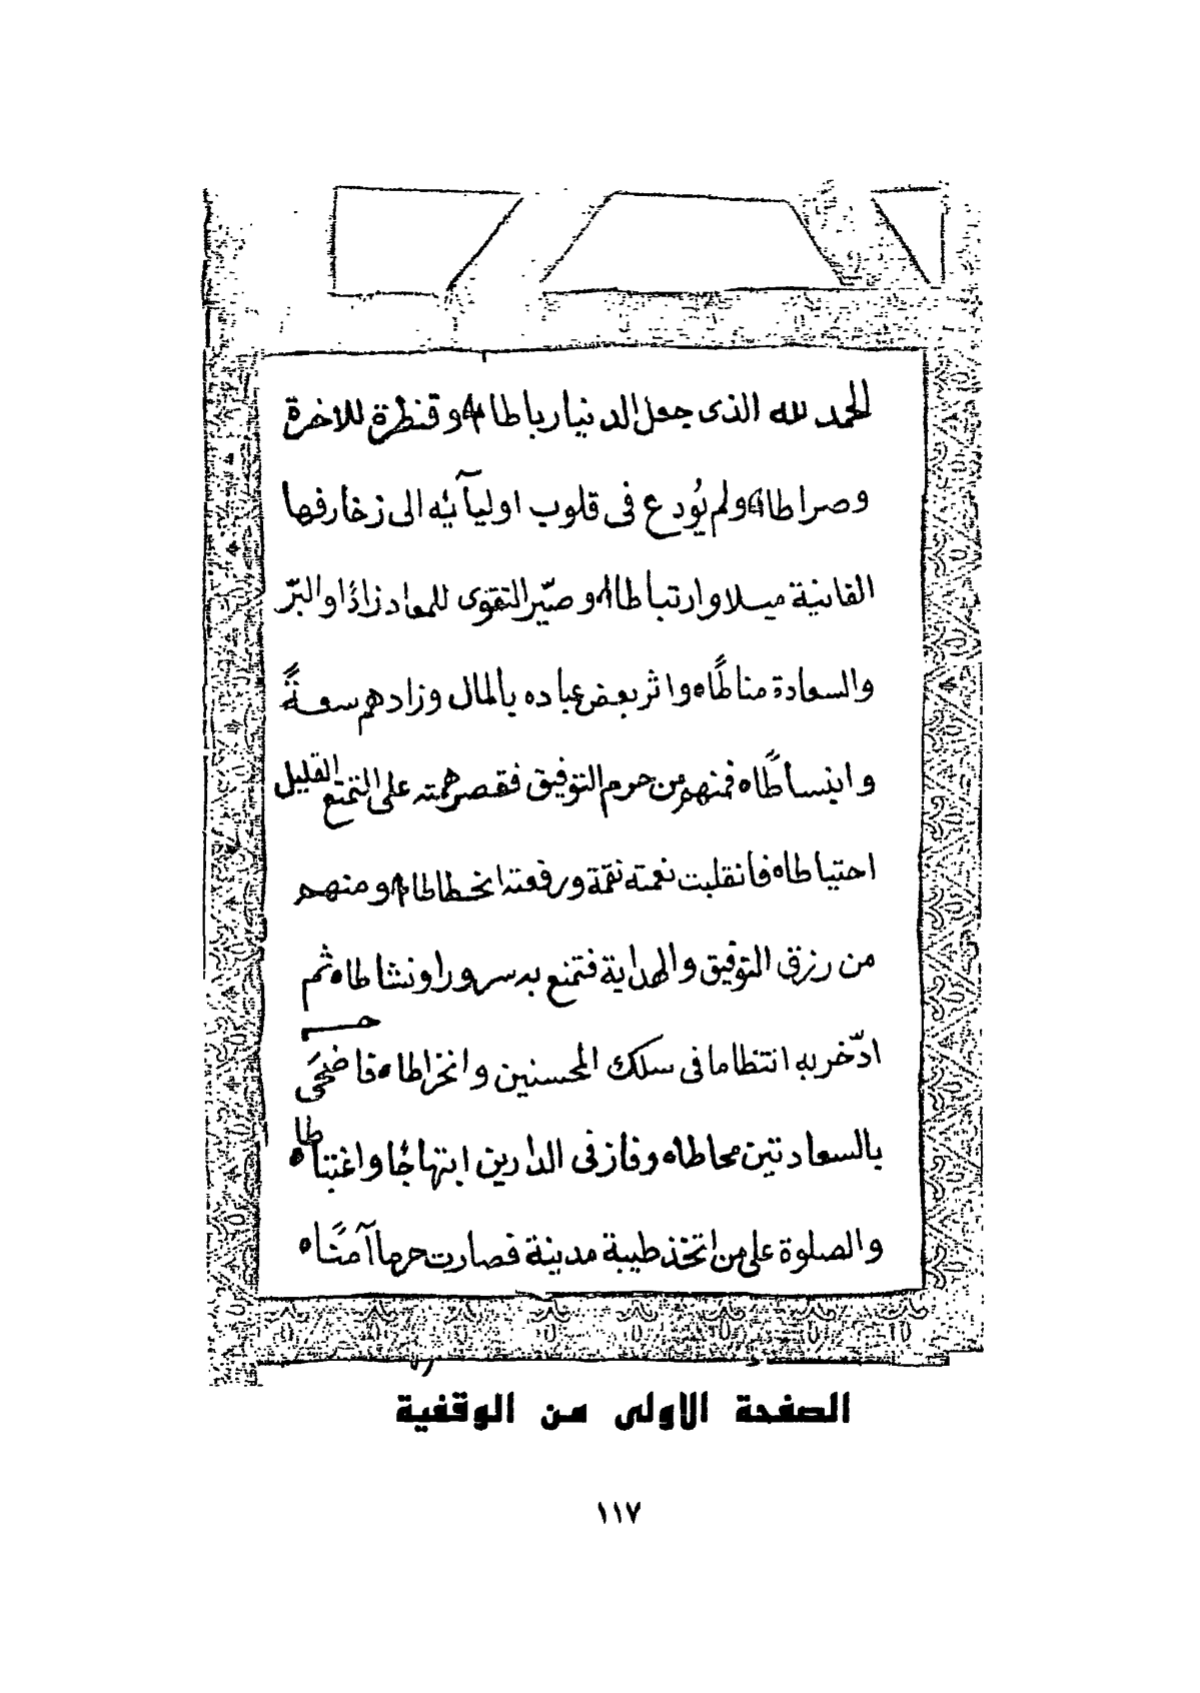 الحمد لله الذى جعل الدنيا رباطا ه وقنطرة للاخرة
وصراطا ه ولم يُودع فى قلوب اوليآئه الى زخارفها
الفانية ميلا وارتباطا ه وصيّر التقوى للمعاد زادًا والبرّ
والسعادة مناطًا ه واثر بعض عباده بالمال وزادهم سعةً
وابنساطًا ه فمنهم من حرم التوفيق فقصر همته على التمتع القليل
احتياطا ه فانقلبت نعمته نقمة ورفعته انخطاطا ه ومنهم
من رزق التوفيق والهداية فتمتع به سرورا ونشاطا ه ثم
ادّخر به انتظاما فى سلك المحسنين وانخراطا ه فاضحَى
بالسعادتين محاطا ه وفاز فى الدارين ابتهاجًا واغتباطا ه
والصلوة على من اتخذ طيبة مدينة فصارت حرما آمنًا ه
الصفحة الاولى من الوقفية
١١٧